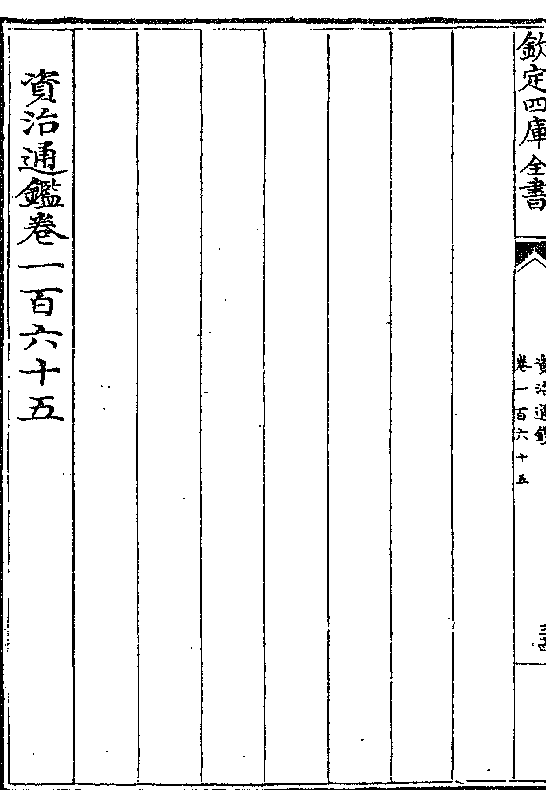 欽定四庫全書
資治通鑑
卷一百六十五
資治通鑑卷一百六十五